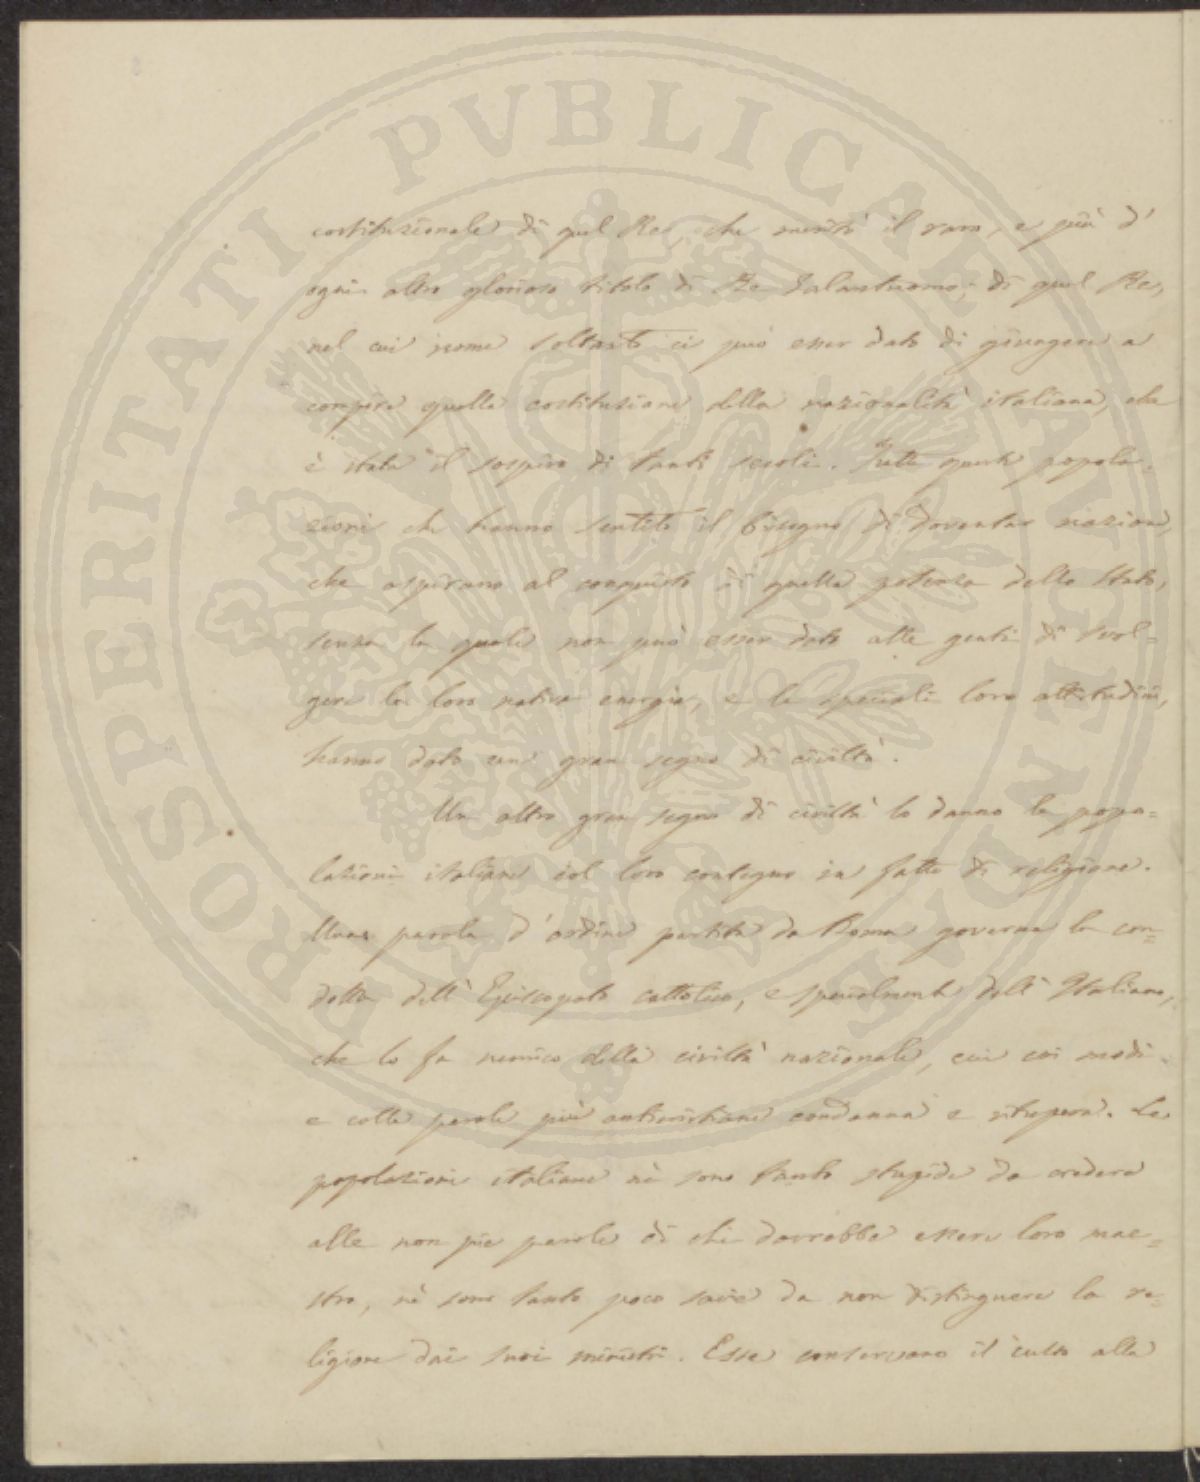 PROSPERITATI PVBLICAE AVGENDAE
costituzionale di quel Re, che meritò il raro, e più d'
ogni altro glorioso titolo di Re Galantuomo; di quel Re,
nel cui nome soltanto ci può esser dato di giungere a
compire quella costituzione della nazionalità italiana, che
è stata il sospiro di tanti secoli. Tutte queste popola-
zioni che hanno sentito il bisogno di doventar nazione,
che aspirano al conquisto di quella potenza dello Stato,
senza la quale non può esser dato alle genti di svol=
gere la loro nativa energia, e le speciali loro attitudini,
hanno dato un gran segno di civiltà.
Un altro gran segno di civiltà lo danno le popo=
lazioni italiane col loro contegno in fatto di religione.
Una parola d'ordine partita da Roma governa la con=
dotta dell'Episcopato cattolico, e specialmente dell'Italiano,
che lo fa nemico della civiltà nazionale, cui coi modi
e colle parole più anticristiane condanna e vitupera. Le
popolazioni italiane nè sono tanto stupide da credere
alle non pie parole di chi dovrebbe essere loro mae=
stro, nè sono tanto poco savie da non distinguere la re=
ligione dai suoi ministri. Esse conservano il culto alla